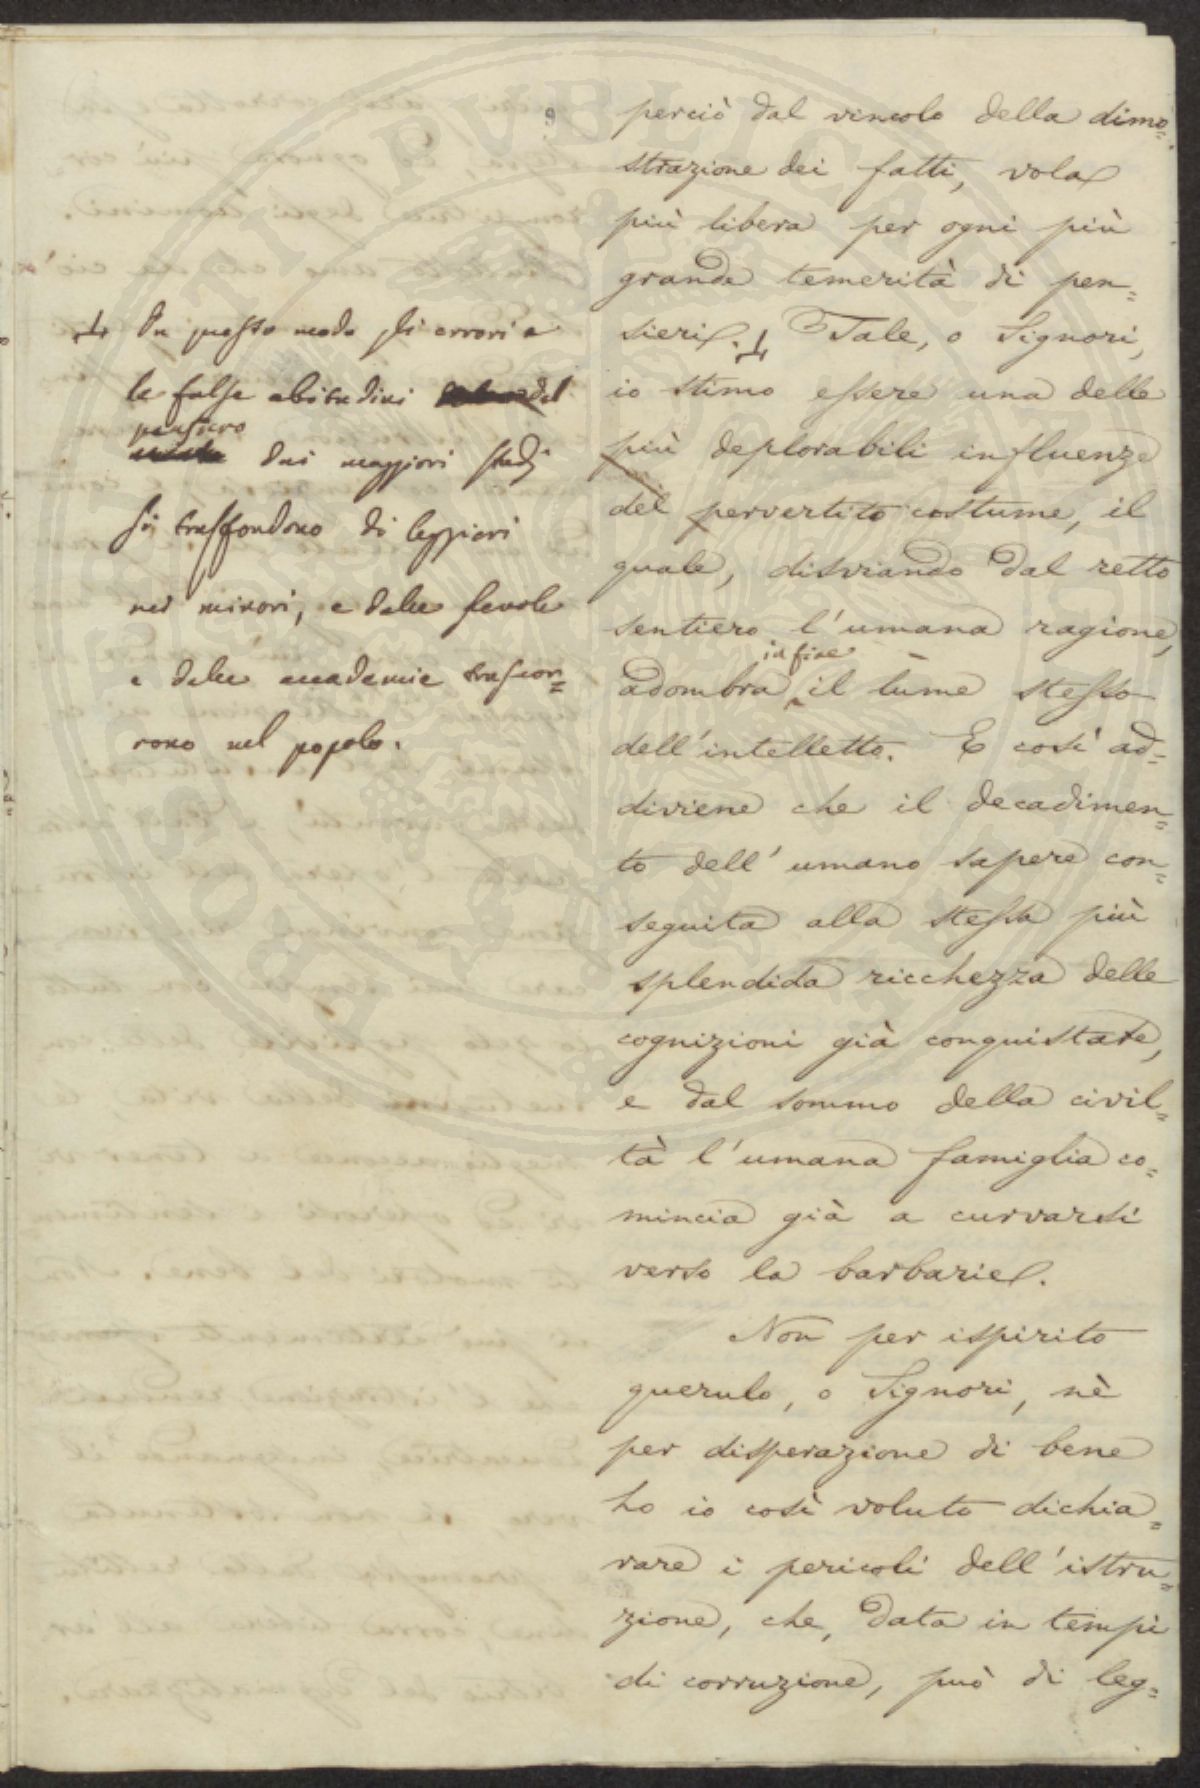 9
perciò dal vincolo della dimo=
strazione dei fatti, vola
più libera per ogni più
grande temerità di pen=
sieri. Tale, o Signori,
io stimo essere una delle
più deplorabili influenze
del pervertito costume, il
quale, disviando dal retto
sentiero l'umana ragione,
adombra infine il lume stesso
dell'intelletto. E così ad=
diviene che il decadimen=
to dell'umano sapere con=
seguita alla stessa più
splendida ricchezza delle
cognizioni già conquistate,
e dal sommo della civil=
tà l'umana famiglia co=
mincia già a curvarsi
verso la barbarie.
Non per ispirito
querulo, o Signori, nè
per disperazione di bene
ho io così voluto dichia=
rare i pericoli dell'istru=
zione, che, data in tempi
di corruzione, può di leg=
In questo modo gli errori e
le false abitudini del
pensiero
dai maggiori studj
si trasfondono di leggieri
nei minori, e dalle scuole
e dalle accademie trascor=
rono nel popolo.
PROSPERITATI PVBLICAE